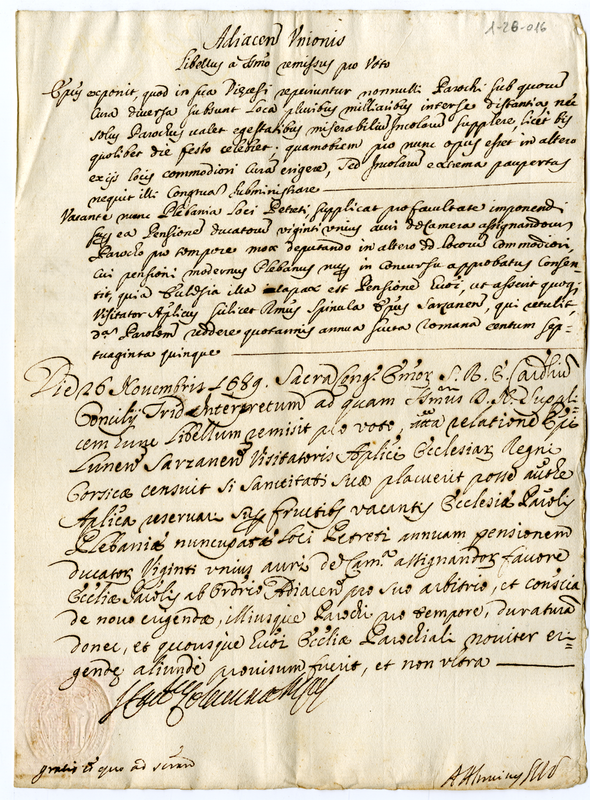 1-28-016
Adiacen Unionis
Libellus a Smo remissus pro Voto
Epus exponit quod in sua Diecesi reperiuntur nonnulli Parochi sub quorum
Cura diversa subsunt Loca pluribus milliaribus inter se distantia, nec
solus Parochus valet egestatibus miserabilium Incolarum supplere, licet bis
quolibet die festo celebret. quamobrem pro nunc opus esset in altero
ex ijs locis commodiori Curam erigere, sed Incolarum extrema paupertas
nequit illi Congrua subministrare
Vacante nunc Plebania Loci Petreti supplicat pro facultate imponendi
ea Pensionem ducatorum viginti unius auri de Camera assignandorum
Parocho pro tempore mox deputando in altero dd. locorum commodiori,
cui pensioni modernus Plebanus in concursu approbatus Consen-
tit, quia Ecclesia illa capax est Pensione, ut asserit quoq
Visitator Aplicus scilicet Rmus Spinula Epus Sarzanen, qui retulit,
da Parolem reddere quotannis annua scuta romana centum sep-
tuaginta quinque
Die 26 Novembris 1689. Sacra Cong. Emor S. R. E. Cardlium
Concilij Trid. Interpretum ad quam Smus D. N. suppli-
cem hunc Libellum remisit pro voto, relatione Epi
Lunen Sarzanen Visitatoris Aplici Ecclesiar Regni
Corsicæ censuit si Sanctitati suæ placuerit posse authe
Aplica reservari fructibus vacantis Ecclesiæ Parolis
Plebaniæ nuncupatæ Loci Petreti annuam pensionem
ducator Viginti unius auri de Cam. assignandor favore
Eccliæ Parolis ab Ordrio Adiacen pro suo arbitrio, et conscia
de novo erigendæ, illiusque Parochi pro tempore, duraturam
donec, et quousque Eccliæ Parochiali noviter eri-
gendæ aliunde provisum fuerit, et non ultra
gratis et quo ad scrara